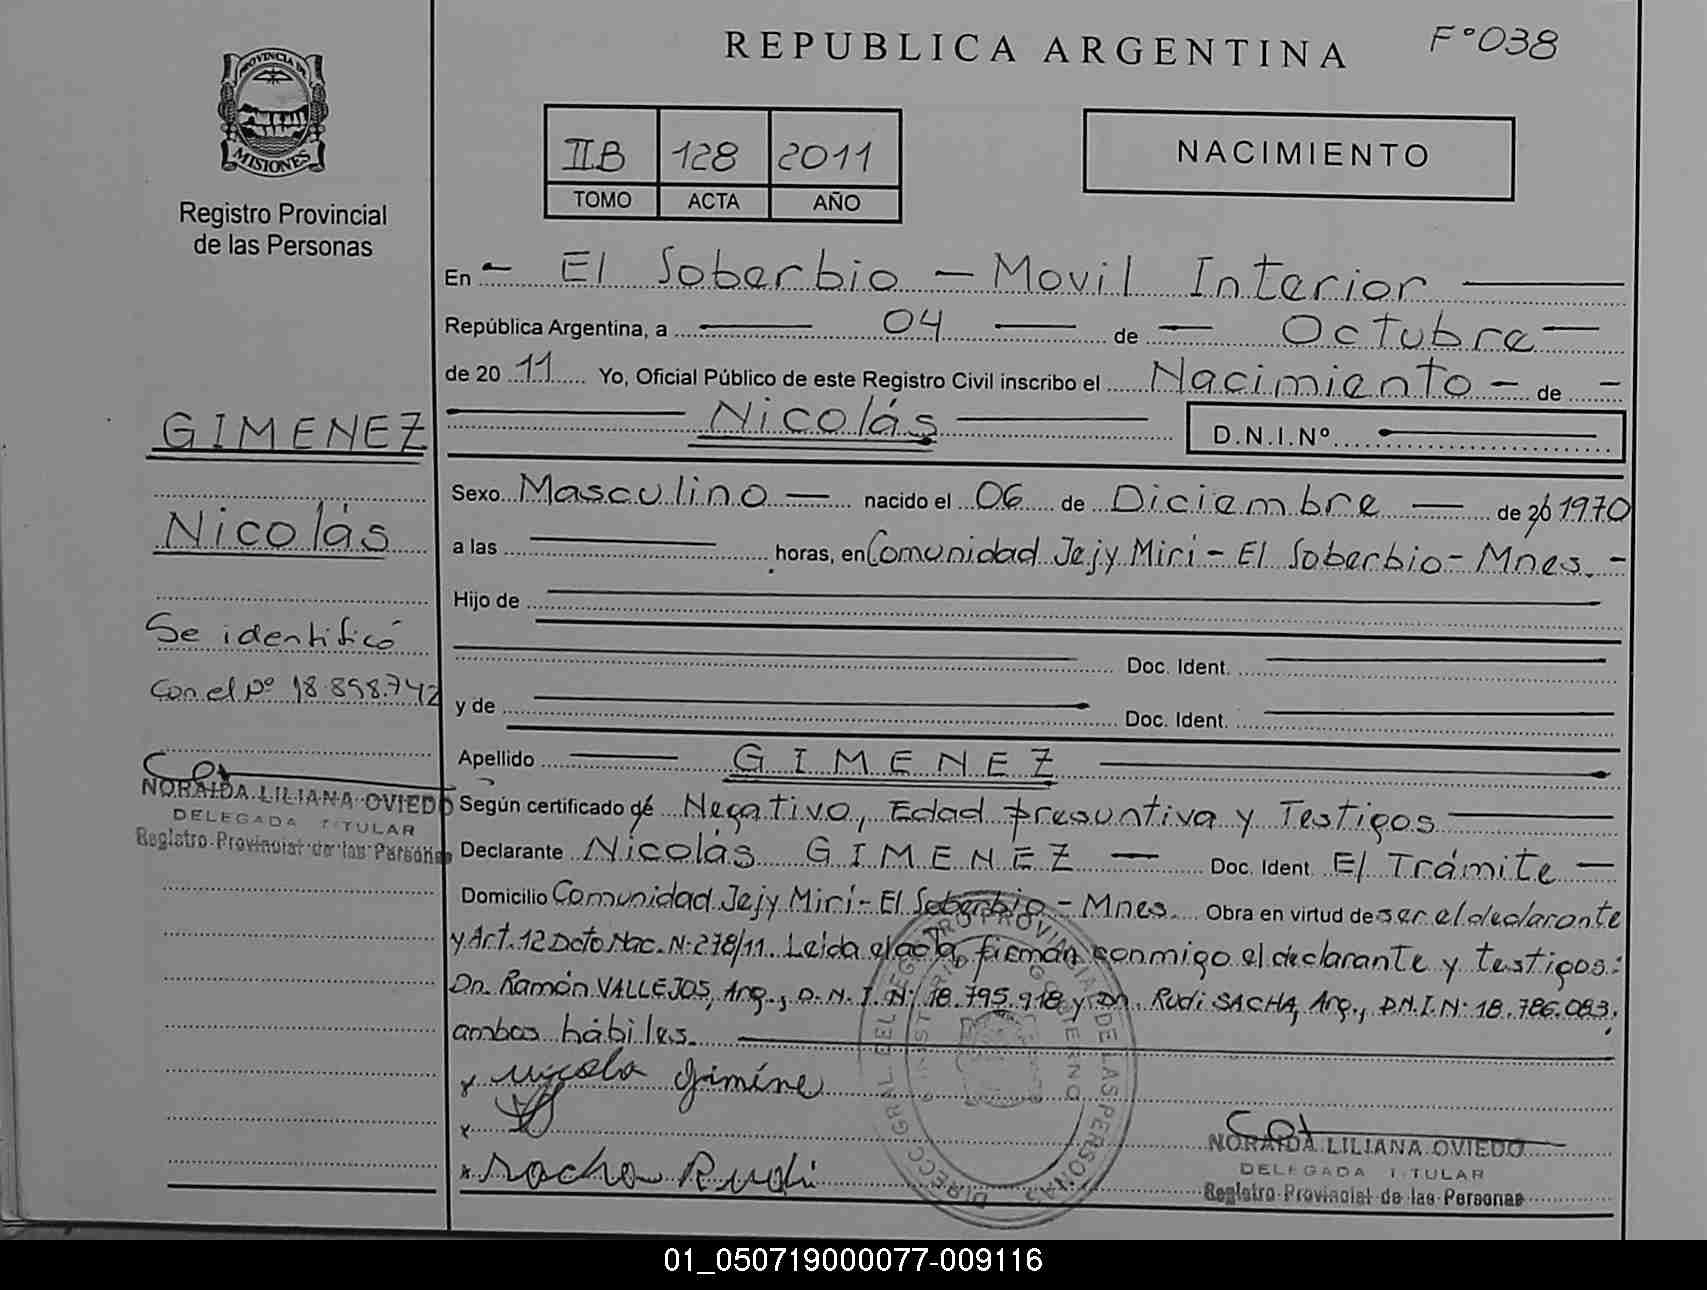 REPUBLICA ARGENTINA
F° 038
PROVINCIA DE
MISIONES
Registro Provincial
de las Personas
IIB 128 2011
TOMO ACTA AÑO
NACIMIENTO
En El Soberbio - Movil Interior
República Argentina, a 04 de Octubre
de 20 11 Yo, Oficial Público de este Registro Civil inscribo el Nacimiento - de -
Nicolás D.N.I.Nº
Sexo Masculino nacido el 06 de Diciembre de 20 1970
a las horas, en Comunidad Jejy Miri - El Soberbio - Mnes. -
Hijo de
Doc. Ident.
y de Doc. Ident.
Apellido GIMENEZ
Según certificado de Negativo, Edad presuntiva y Testigos
Declarante Nicolás GIMENEZ Doc. Ident. E/ Trámite
Domicilio Comunidad Jejy Miri - El Soberbio - Mnes. Obra en virtud de ser el declarante
y Art. 12 Dcto Nac. N: 278/11. Leida el acta, firman conmigo el declarante y testigos:
Dn. Ramón VALLEJOS, Arg., D.N.I.N: 18.795.918 y Dn. Rudi SACHA, Arg., D.N.I.N: 18.786.083,
ambos hábiles.
x Nicola Giméne
x
x Sacha Rudi
NORAIDA LILIANA OVIEDO
DELEGADA TITULAR
Registro Provincial de las Personas
GIMENEZ
Nicolás
Se identificó
con el Nº 18.898.742
NORAIDA LILIANA OVIEDO
DELEGADA TITULAR
Registro Provincial de las Personas
01_050719000077-009116